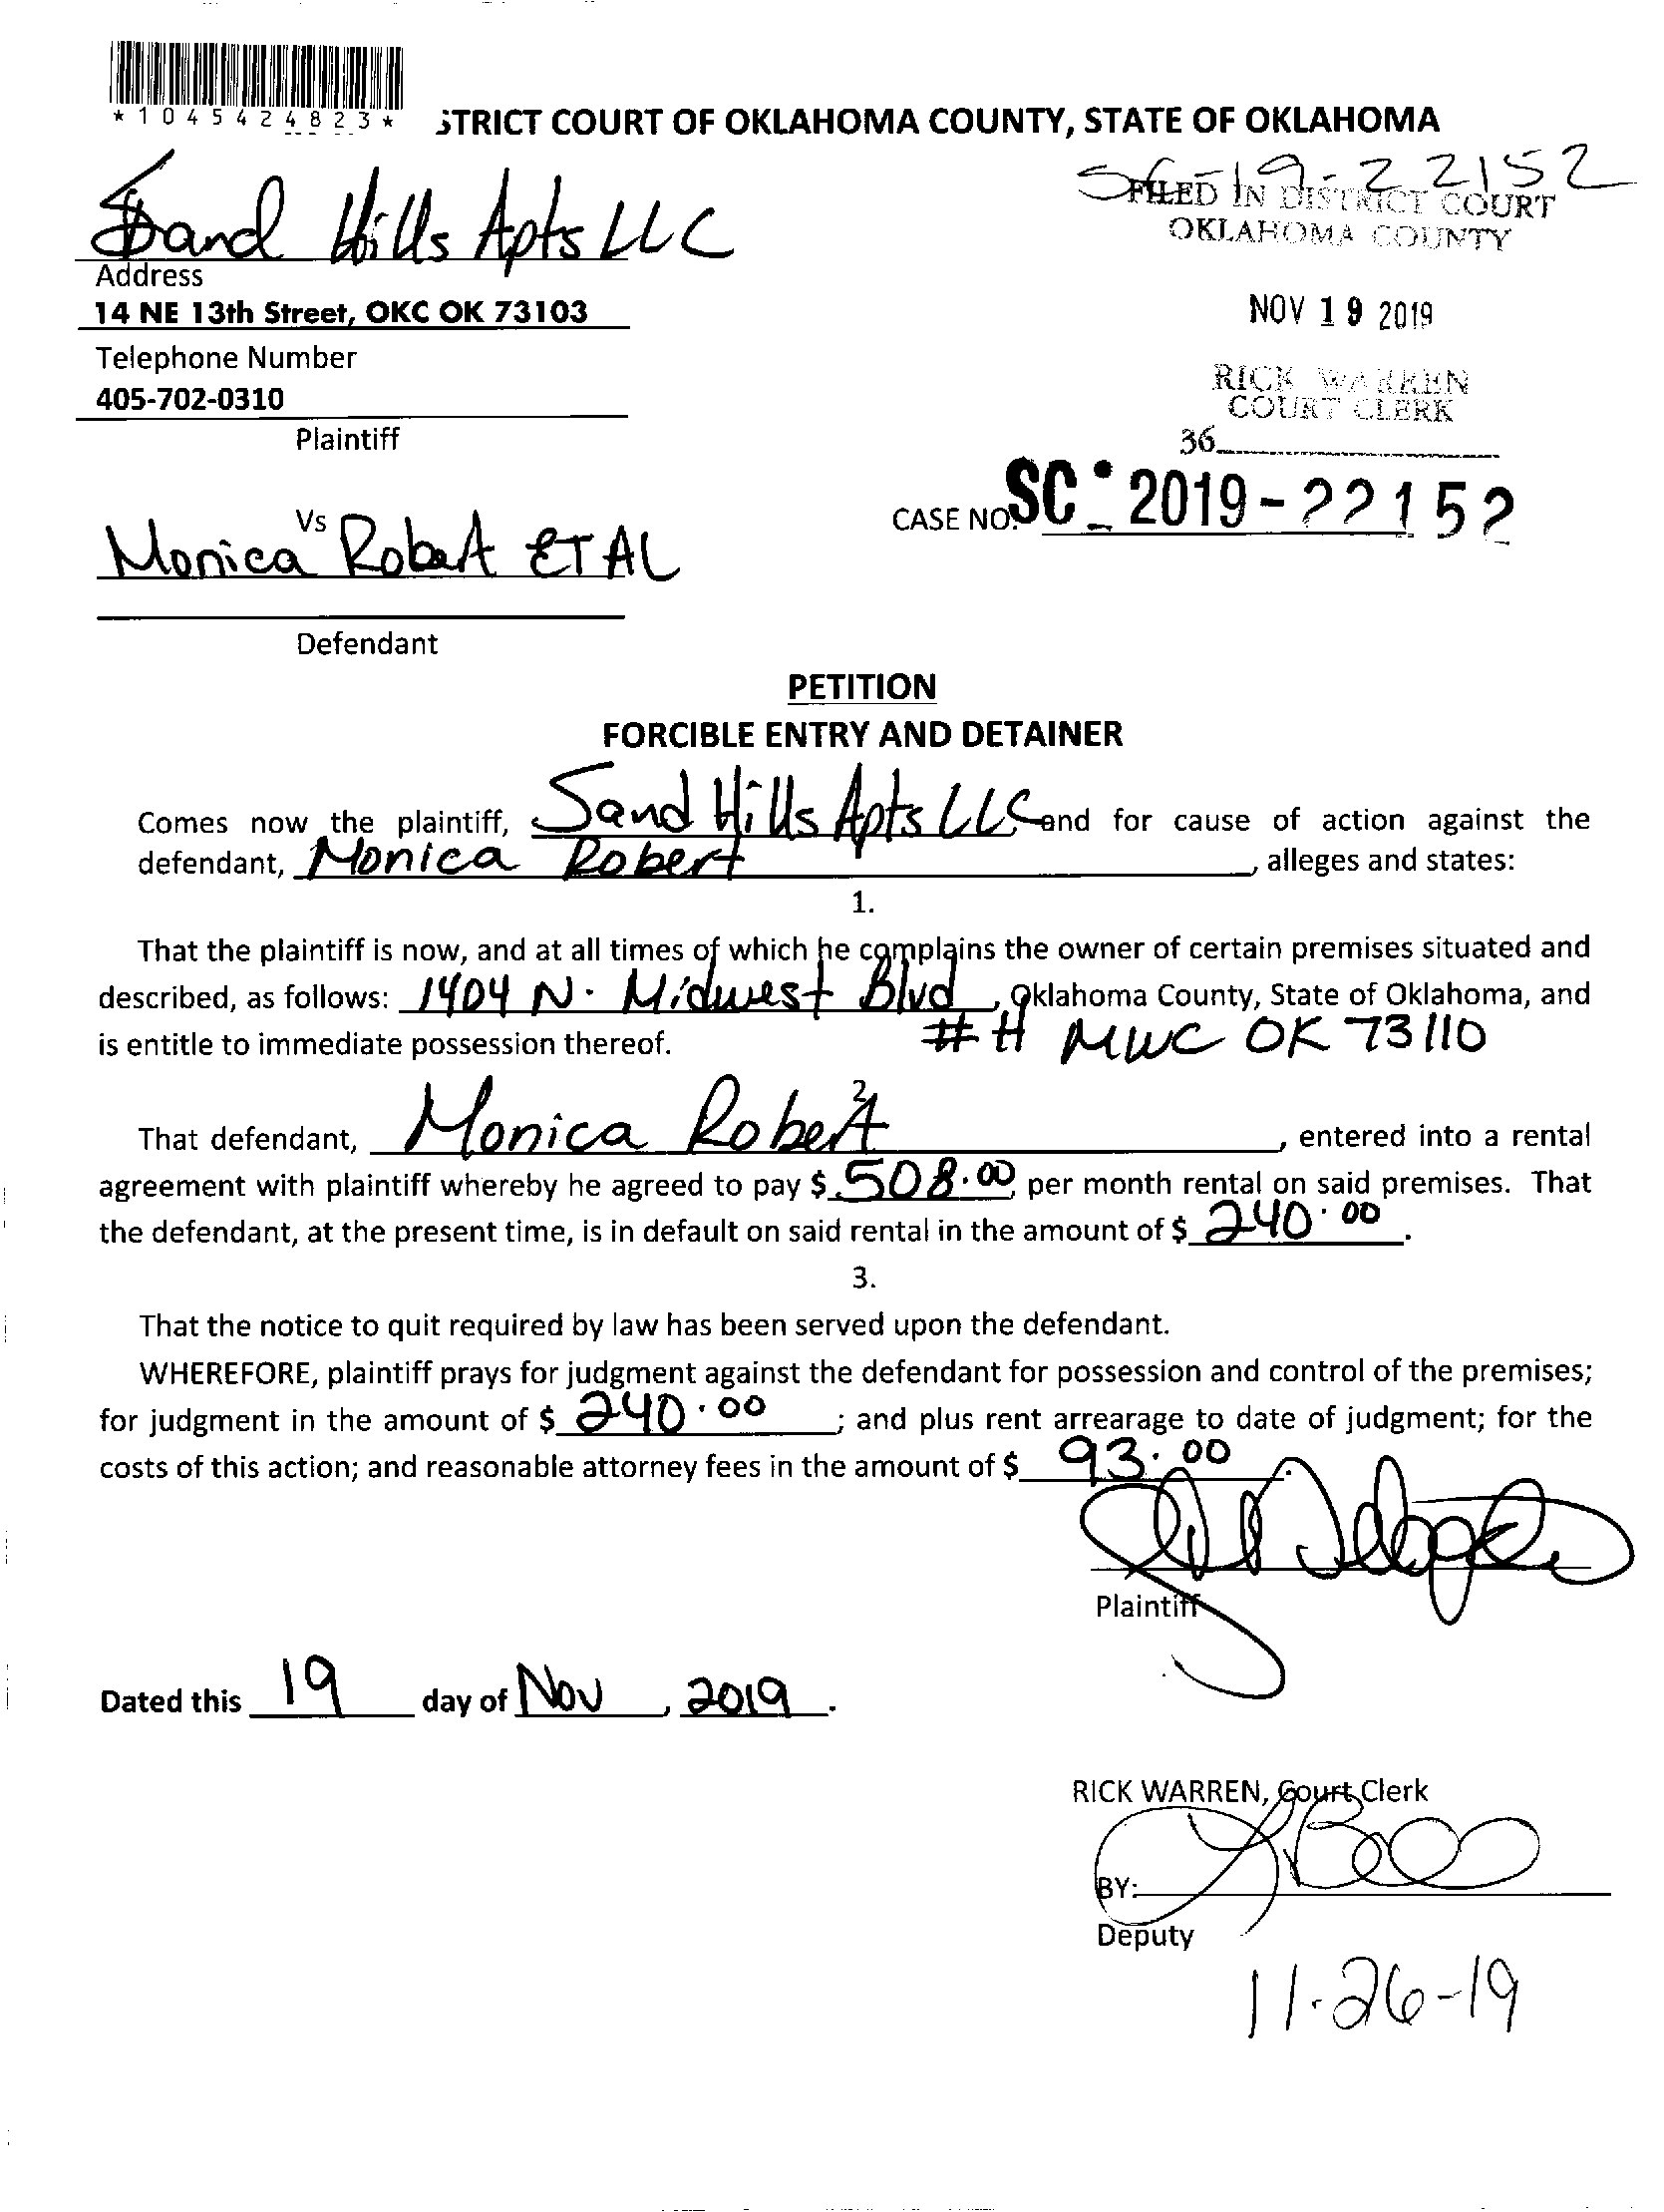 *1045424823*
STRICT COURT OF OKLAHOMA COUNTY, STATE OF OKLAHOMA
SC-19-22152
FILED IN DISTRICT COURT
OKLAHOMA COUNTY
Sand Hills Apts LLC
Address
14 NE 13th Street, OKC OK 73103
NOV 19 2019
Telephone Number
405-702-0310
RICK WARREN
COURT CLERK
Plaintiff
36
CASE NO. SC - 2019 - 22152
Vs
Monica Robert ET AL
Defendant
PETITION
FORCIBLE ENTRY AND DETAINER
Comes now the plaintiff, Sand Hills Apts LLC and for cause of action against the
defendant, Monica Robert, alleges and states:
1.
That the plaintiff is now, and at all times of which he complains the owner of certain premises situated and
described, as follows: 1404 N. Midwest Blvd, Oklahoma County, State of Oklahoma, and
is entitle to immediate possession thereof. # H MWC OK 73110
2.
That defendant, Monica Robert, entered into a rental
agreement with plaintiff whereby he agreed to pay $ 508.00 per month rental on said premises. That
the defendant, at the present time, is in default on said rental in the amount of $ 240.00.
3.
That the notice to quit required by law has been served upon the defendant.
WHEREFORE, plaintiff prays for judgment against the defendant for possession and control of the premises;
for judgment in the amount of $ 240.00; and plus rent arrearage to date of judgment; for the
costs of this action; and reasonable attorney fees in the amount of $ 93.00.
Plaintiff
Dated this 19 day of Nov, 2019.
RICK WARREN, Court Clerk
BY:
Deputy
11-26-19